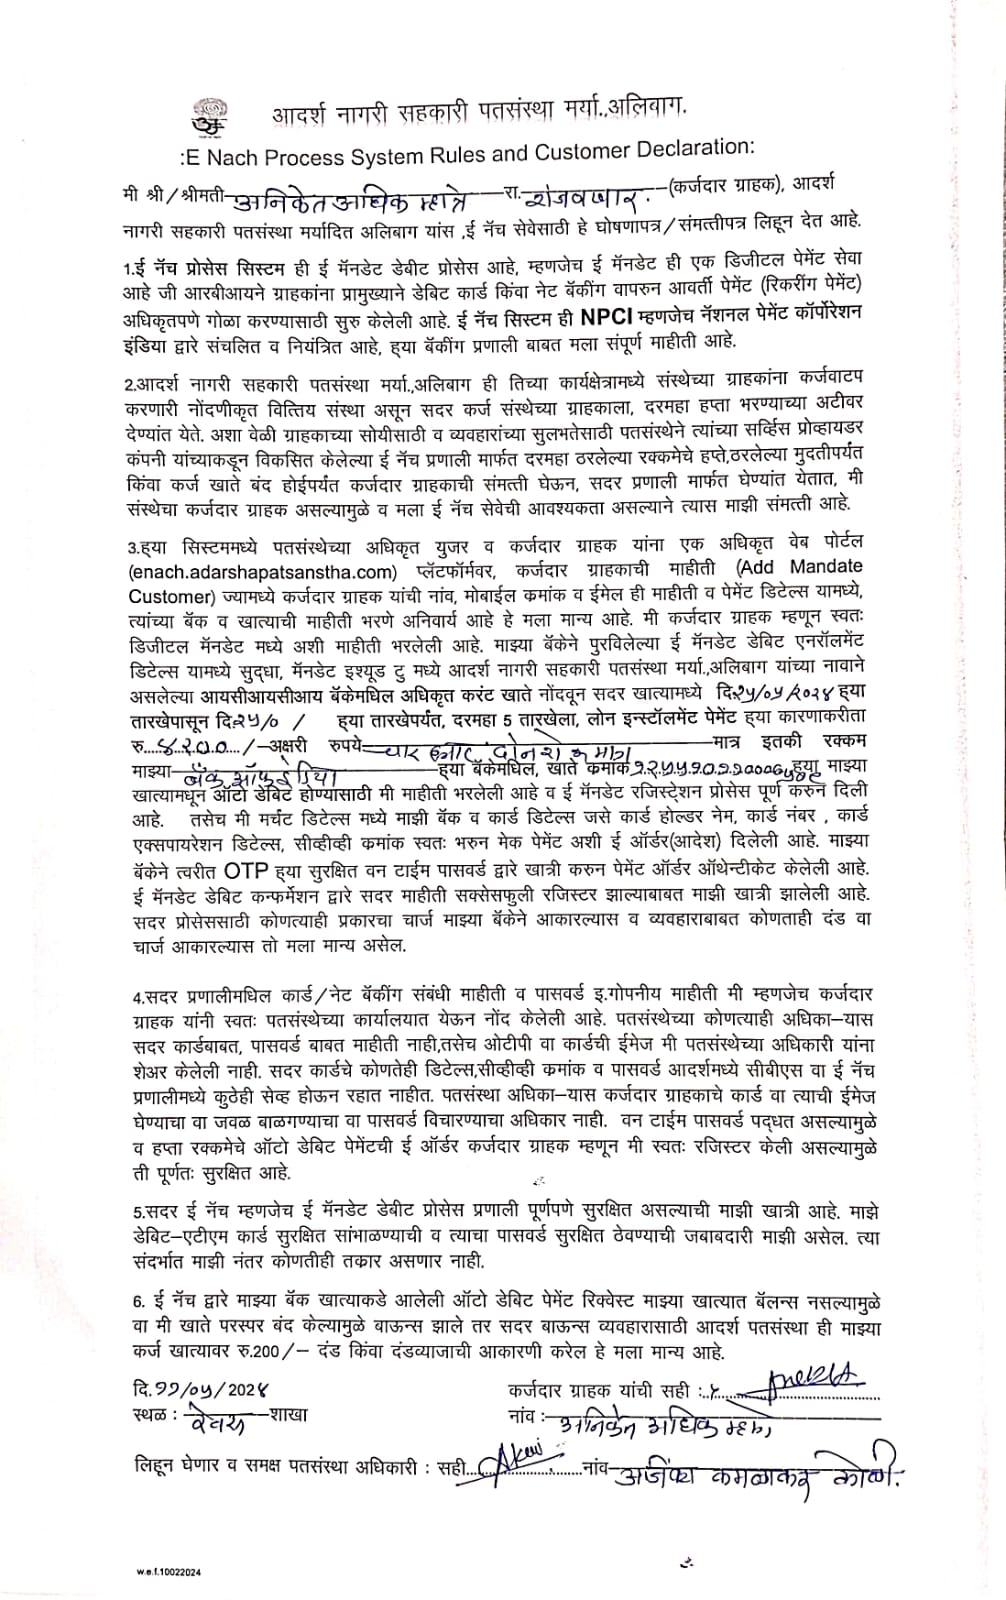 आदर्श नागरी सहकारी पतसंस्था मर्या.,अलिबाग.
:E Nach Process System Rules and Customer Declaration:
मी श्री/श्रीमती अनिकेत अधिक म्हात्रे रा. (कर्जदार ग्राहक), आदर्श
नागरी सहकारी पतसंस्था मर्यादित अलिबाग यांस ,ई नॅच सेवेसाठी हे घोषणापत्र/संमत्तीपत्र लिहून देत आहे.
1.ई नॅच प्रोसेस सिस्टिम ही ई मॅनडेट डेबीट प्रोसेस आहे, म्हणजेच ई मॅनडेट ही एक डिजीटल पेमेंट सेवा
आहे जी आरबीआयने ग्राहकांना प्रामुख्याने डेबिट कार्ड किंवा नेट बॅकींग वापरुन आवर्ती पेमेंट (रिकरींग पेमेंट)
अधिकृतपणे गोळा करण्यासाठी सुरु केलेली आहे. ई नॅच सिस्टम ही NPCI म्हणजेच नॅशनल पेमेंट कॉर्पोरेशन
इंडिया द्वारे संचलित व नियंत्रित आहे, ह्या बॅकींग प्रणाली बाबत मला संपूर्ण माहीती आहे.
2.आदर्श नागरी सहकारी पतसंस्था मर्या.,अलिबाग ही तिच्या कार्यक्षेत्रामध्ये संस्थेच्या ग्राहकांना कर्जवाटप
करणारी नोंदणीकृत वित्तिय संस्था असून सदर कर्ज संस्थेच्या ग्राहकाला, दरमहा हप्ता भरण्याच्या अटीवर
देण्यांत येते. अशा वेळी ग्राहकाच्या सोयीसाठी व व्यवहारांच्या सुलभतेसाठी पतसंस्थेने त्यांच्या सर्व्हिस प्रोव्हायडर
कंपनी यांच्याकडून विकसित केलेल्या ई नॅच प्रणाली मार्फत दरमहा ठरलेल्या रक्कमेचे हप्ते,ठरलेल्या मुदतीपर्यंत
किंवा कर्ज खाते बंद होईपर्यंत कर्जदार ग्राहकाची संमत्ती घेऊन, सदर प्रणाली मार्फत घेण्यांत येतात, मी
संस्थेचा कर्जदार ग्राहक असल्यामुळे व मला ई नॅच सेवेची आवश्यकता असल्याने त्यास माझी संमत्ती आहे.
3.ह्या सिस्टममध्ये पतसंस्थेच्या अधिकृत युजर व कर्जदार ग्राहक यांना एक अधिकृत वेब पोर्टल
(enach.adarshapatsanstha.com) प्लॅटफॉर्मवर, कर्जदार ग्राहकाची माहीती (Add Mandate
Customer) ज्यामध्ये कर्जदार ग्राहक यांची नांव, मोबाईल क्रमांक व ईमेल ही माहीती व पेमेंट डिटेल्स यामध्ये,
त्यांच्या बॅक व खात्याची माहीती भरणे अनिवार्य आहे हे मला मान्य आहे. मी कर्जदार ग्राहक म्हणून स्वतः
डिजीटल मॅनडेट मध्ये अशी माहीती भरलेली आहे. माझ्या बॅकेने पुरविलेल्या ई मॅनडेट डेबिट एनरॉलमेंट
डिटेल्स यामध्ये सुद्धा, मॅनडेट इश्यूड टु मध्ये आदर्श नागरी सहकारी पतसंस्था मर्या.,अलिबाग यांच्या नावाने
असलेल्या आयसीआयसीआय बॅकेमधिल अधिकृत करंट खाते नोंदवून सदर खात्यामध्ये दि.२५/०५/२०२४ ह्या
तारखेपासून दि.२५/० / ह्या तारखेपर्यंत, दरमहा 5 तारखेला, लोन इन्स्टॉलमेंट पेमेंट ह्या कारणाकरीता
रु....४२००.../-अक्षरी रुपये चार हजार दोनशे मात्र मात्र इतकी रक्कम
माझ्या बँक ऑफ इंडिया ह्या बॅकेमधिल, खाते क्रमांक ह्या माझ्या
खात्यामधून ऑटो डेबिट होण्यासाठी मी माहीती भरलेली आहे व ई मॅनडेट रजिस्ट्रेशन प्रोसेस पूर्ण करुन दिली
आहे. तसेच मी मर्चंट डिटेल्स मध्ये माझी बॅक व कार्ड डिटेल्स जसे कार्ड होल्डर नेम, कार्ड नंबर , कार्ड
एक्सपायरेशन डिटेल्स, सीव्हीव्ही क्रमांक स्वतः भरुन मेक पेमेंट अशी ई ऑर्डर(आदेश) दिलेली आहे. माझ्या
बॅकेने त्वरीत OTP ह्या सुरक्षित वन टाईम पासवर्ड द्वारे खात्री करुन पेमेंट ऑर्डर ऑथेन्टीकेट केलेली आहे.
ई मॅनडेट डेबिट कन्फर्मेशन द्वारे सदर माहीती सक्सेसफुली रजिस्टर झाल्याबाबत माझी खात्री झालेली आहे.
सदर प्रोसेससाठी कोणत्याही प्रकारचा चार्ज माझ्या बॅकेने आकारल्यास व व्यवहाराबाबत कोणताही दंड वा
चार्ज आकारल्यास तो मला मान्य असेल.
4.सदर प्रणालीमधिल कार्ड/नेट बॅकींग संबंधी माहीती व पासवर्ड इ.गोपनीय माहीती मी म्हणजेच कर्जदार
ग्राहक यांनी स्वतः पतसंस्थेच्या कार्यालयात येऊन नोंद केलेली आहे. पतसंस्थेच्या कोणत्याही अधिका–यास
सदर कार्डबाबत, पासवर्ड बाबत माहीती नाही,तसेच ओटीपी वा कार्डची ईमेज मी पतसंस्थेच्या अधिकारी यांना
शेअर केलेली नाही. सदर कार्डचे कोणतेही डिटेल्स,सीव्हीव्ही क्रमांक व पासवर्ड आदर्शमध्ये सीबीएस वा ई नॅच
प्रणालीमध्ये कुठेही सेव्ह होऊन रहात नाहीत. पतसंस्था अधिका–यास कर्जदार ग्राहकाचे कार्ड वा त्याची ईमेज
घेण्याचा वा जवळ बाळगण्याचा वा पासवर्ड विचारण्याचा अधिकार नाही. वन टाईम पासवर्ड पद्धत असल्यामुळे
व हप्ता रक्कमेचे ऑटो डेबिट पेमेंटची ई ऑर्डर कर्जदार ग्राहक म्हणून मी स्वतः रजिस्टर केली असल्यामुळे
ती पूर्णतः सुरक्षित आहे.
5.सदर ई नॅच म्हणजेच ई मॅनडेट डेबीट प्रोसेस प्रणाली पूर्णपणे सुरक्षित असल्याची माझी खात्री आहे. माझे
डेबिट–एटीएम कार्ड सुरक्षित सांभाळण्याची व त्याचा पासवर्ड सुरक्षित ठेवण्याची जबाबदारी माझी असेल. त्या
संदर्भात माझी नंतर कोणतीही तक्रार असणार नाही.
6. ई नॅच द्वारे माझ्या बॅक खात्याकडे आलेली ऑटो डेबिट पेमेंट रिक्वेस्ट माझ्या खात्यात बॅलन्स नसल्यामुळे
वा मी खाते परस्पर बंद केल्यामुळे बाऊन्स झाले तर सदर बाऊन्स व्यवहारासाठी आदर्श पतसंस्था ही माझ्या
कर्ज खात्यावर रु.200/– दंड किंवा दंडव्याजाची आकारणी करेल हे मला मान्य आहे.
दि.११/०५/202४ कर्जदार ग्राहक यांची सही :
स्थळ : रेवस शाखा नांव : अनिकेत अधिक म्हात्रे
लिहून घेणार व समक्ष पतसंस्था अधिकारी : सही नांव अजिंक्य कमळाकर कोळी.
w.e.f.10022024